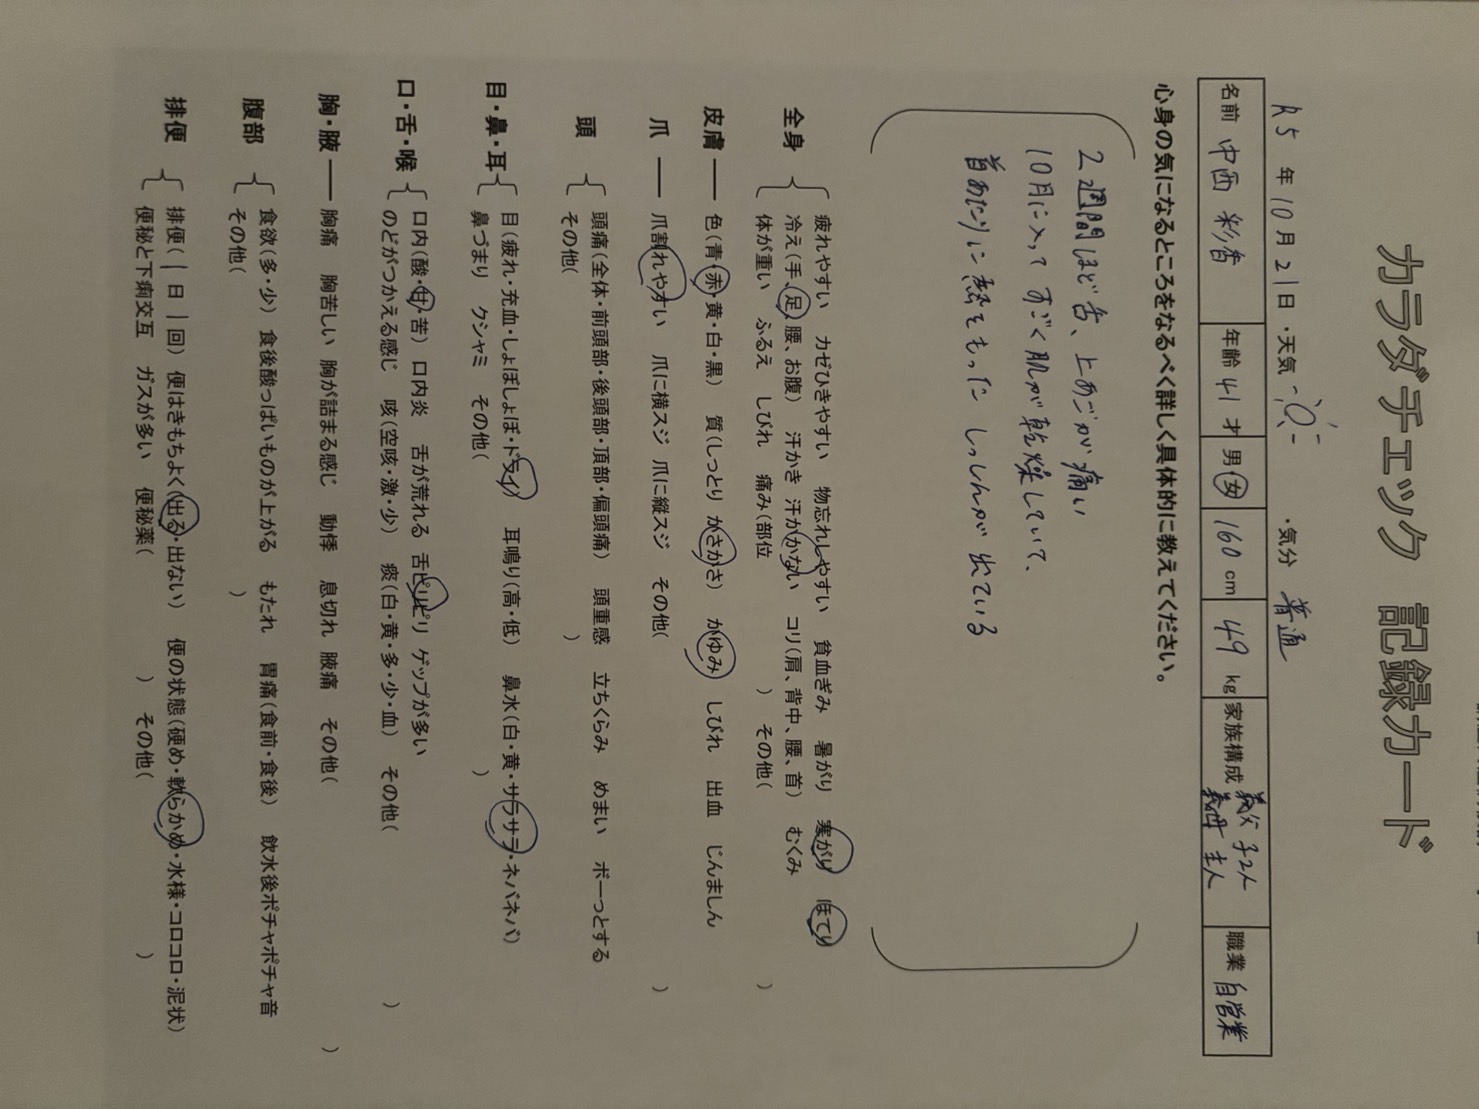 カラダチェック 記録カード
R5 年 10 月 21 日 ・天気 ・気分 普通
名前 中西 彩香 年齢 41 才 男・女 160 cm 49 kg 家族構成 義父 子2人 義母 主人 職業 自営業
心身の気になるところをなるべく詳しく具体的に教えてください。
2週間ほど舌、上あごが痛い
10月に入って すごく肌が乾燥していて、
首あたりに熱をもった しっしんが出ている
全身 疲れやすい カゼひきやすい 物忘れしやすい 貧血ぎみ 暑がり 寒がり ほてり
冷え(手、足、腰、お腹) 汗かき 汗がかない コリ(肩、背中、腰、首) むくみ
体が重い ふるえ しびれ 痛み(部位 ) その他( )
皮膚 色(青・赤・黄・白・黒) 質(しっとり かさかさ) かゆみ しびれ 出血 じんましん
爪 爪割れやすい 爪に横スジ 爪に縦スジ その他( )
頭 頭痛(全体・前頭部・後頭部・頂部・偏頭痛) 頭重感 立ちくらみ めまい ボーっとする
その他( )
目・鼻・耳 目(疲れ・充血・しょぼしょぼ・ドライ) 耳鳴り(高・低) 鼻水(白・黄・サラサラ・ネバネバ)
鼻づまり クシャミ その他( )
口・舌・喉 口内(酸・甘・苦) 口内炎 舌が荒れる 舌ピリピリ ゲップが多い
のどがつかえる感じ 咳(空咳・激・少) 痰(白・黄・多・少・血) その他( )
胸・腋 胸痛 胸苦しい 胸が詰まる感じ 動悸 息切れ 腋痛 その他( )
腹部 食欲(多・少) 食後酸っぱいものが上がる もたれ 胃痛(食前・食後) 飲水後ポチャポチャ音
その他( )
排便 排便( 1 日 1 回) 便はきもちよく(出る・出ない) 便の状態(硬め・軟らかめ・水様・コロコロ・泥状)
便秘と下痢交互 ガスが多い 便秘薬( ) その他( )